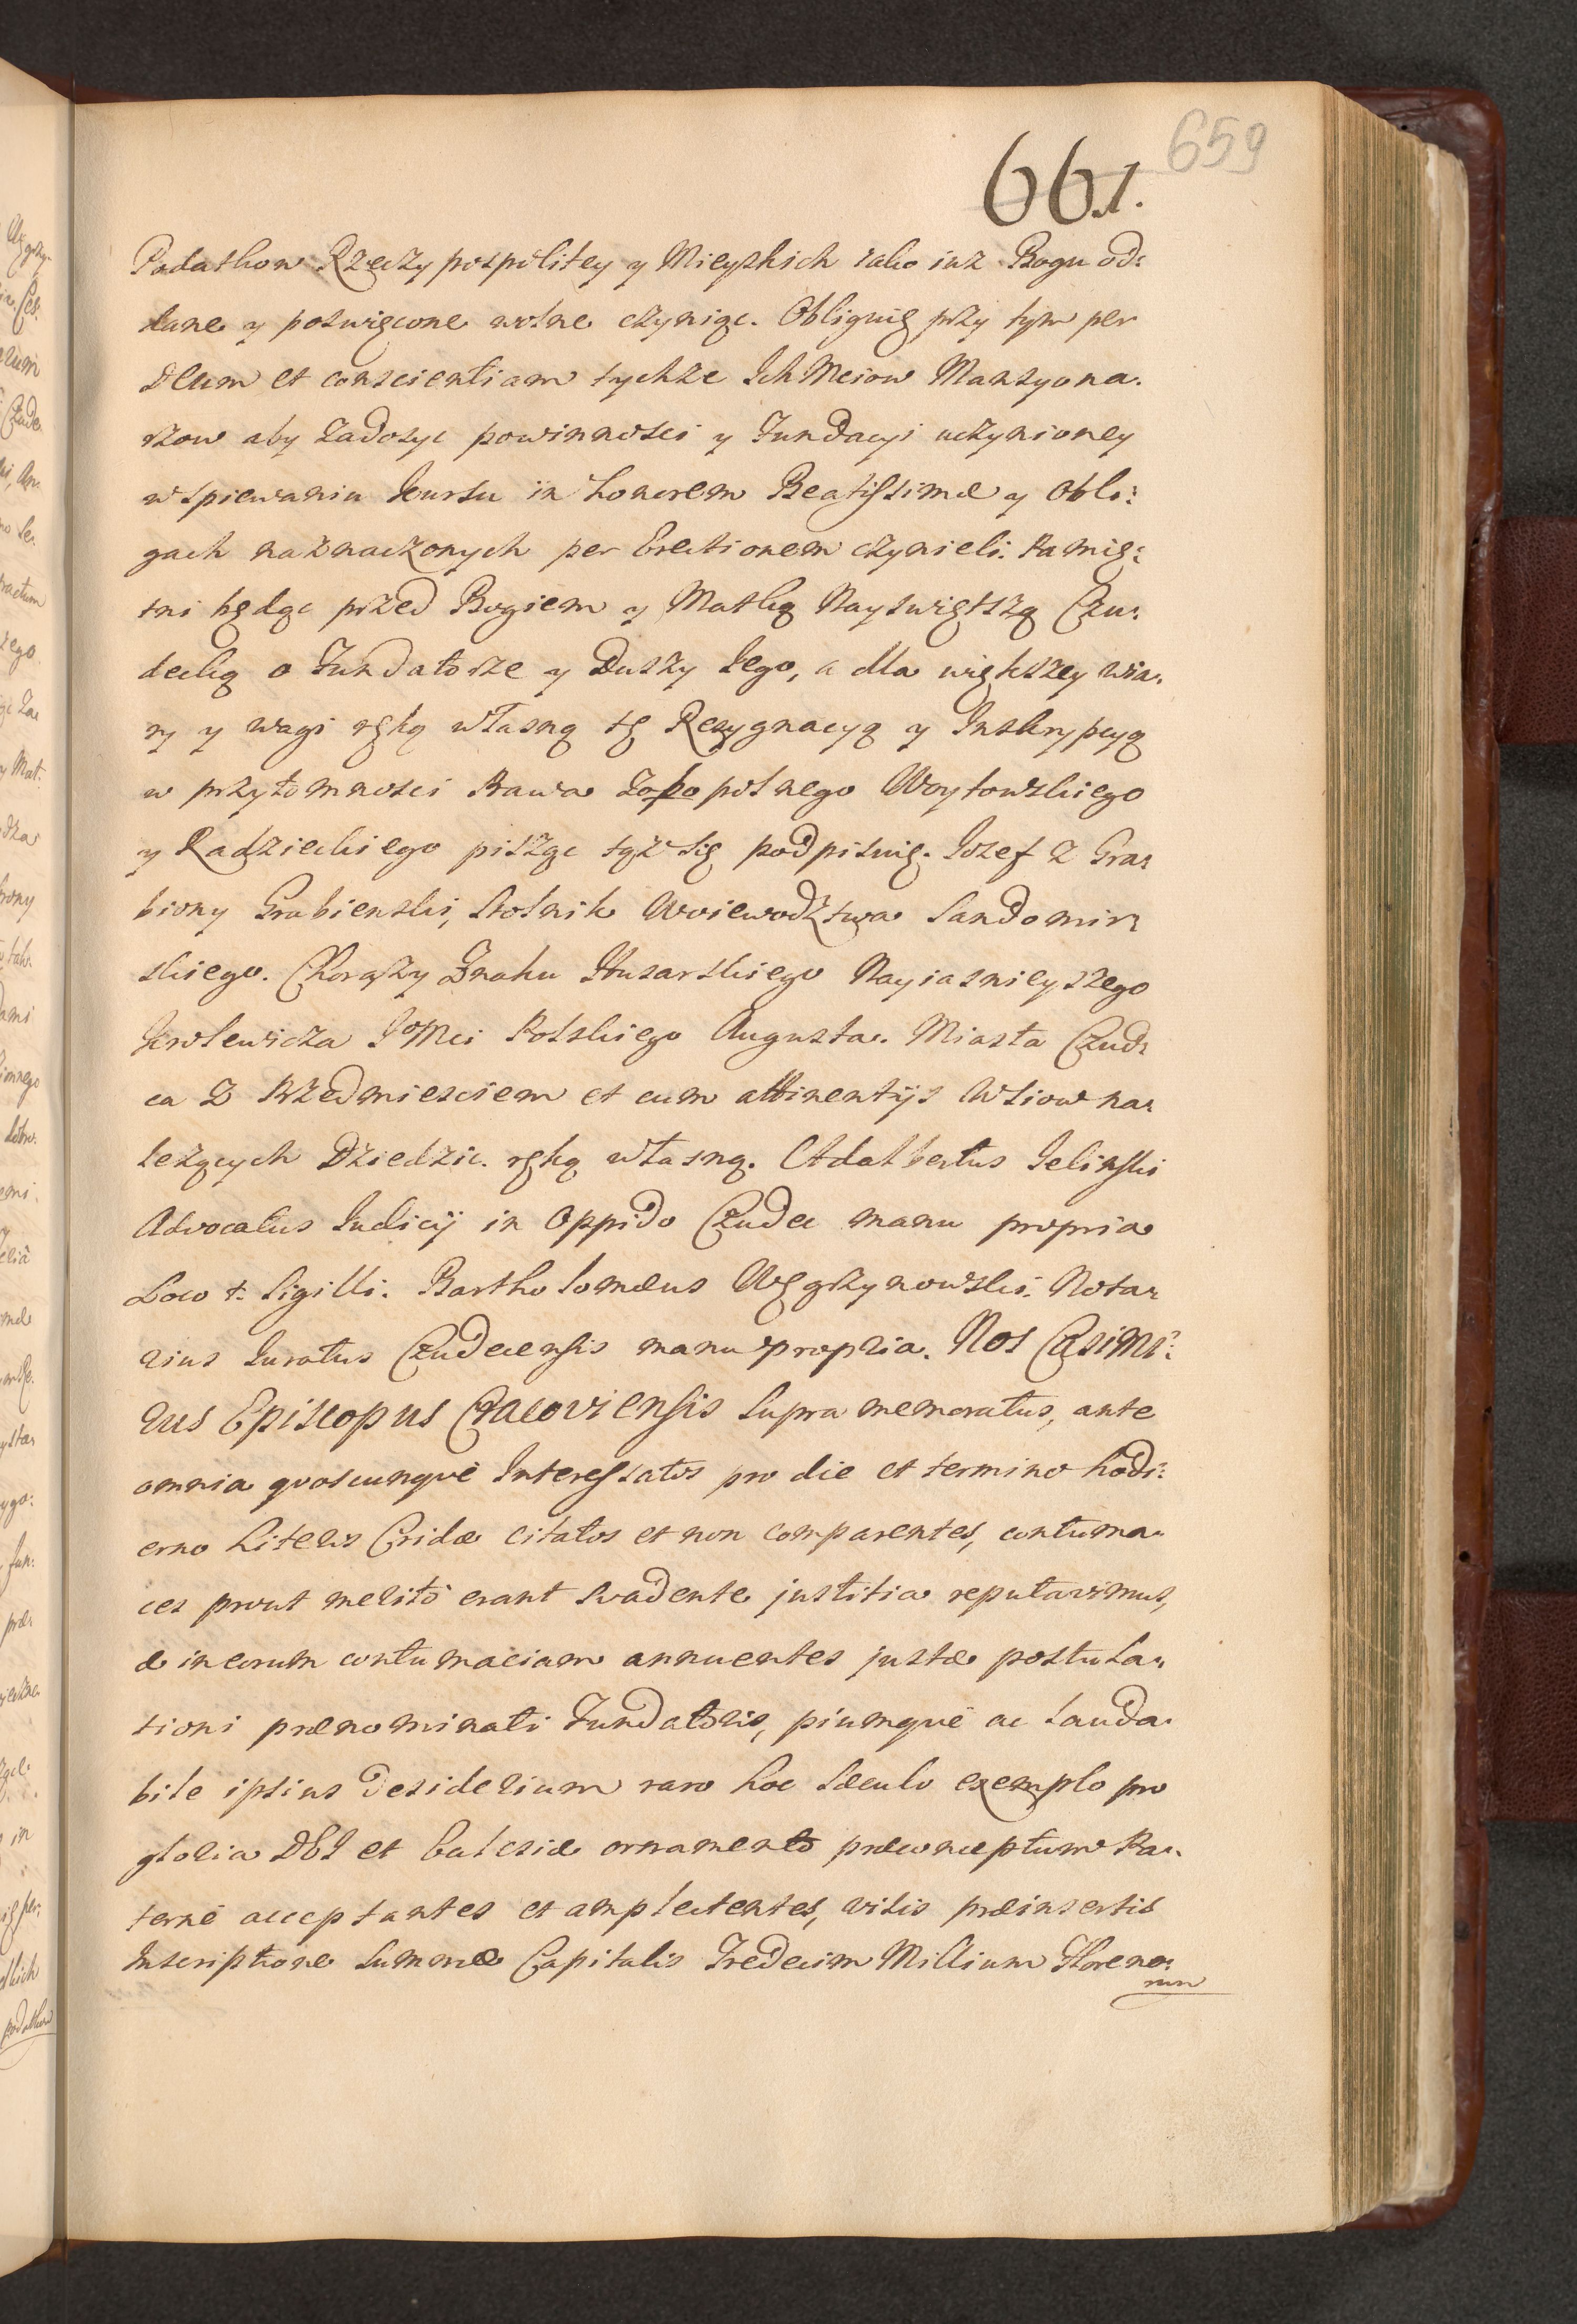 659
661.
Podatkow Rzeczypospolitey y Mieyskich iako iuz Bogu od:
dane y poswięcone wolne czyniąc. Obliguię przy tym per
Deum et conscientiam tychze IchMciow Mansyona:
rzow aby zadosyc powinnosci y Fundacyi uczynioney
w spiewaniu kursu in honorem Beatissimæ y obli:
gach naznaczonych per Erectionem czynieli. Pamię:
tni będąc przed Bogiem y Matką Nayswiętszą Czu:
decką o Fundatorze y Duszy Iego, a dla większey wia:
ry y wagi ręką własną tę Rezygnacyą y Inskrypcyą
w przytomnosci Prawa Zupopolnego Woytowskiego
y Radzieckiego pisząc tąż się podpisuię. Iozef z Gra:
biony Grabienski, Stolnik Woiewodztwa Sandomir:
skiego. Chorązy Znaku Husarskiego Nayiasnieyszego
Krolewicza IoMci Polskiego Augusta. Miasta Czud:
ca z Przedmiesciem et cum attinentijs Wsiow na:
lezących Dziedzic. ręką własną. Adalbertus Ielinski
Advocatus Iudicij in Oppido Czudec manu propria
Loco +: Sigilli. Bartholomæus Węgrzynowski. Nota:
rius Iuratus Czudecensis manu propria. Nos Casimi:
rus Episcopus Cracoviensis supra memoratus, ante
omnia quoscunque Interessatos pro die et termino hodi:
erno Literis Cridæ citatos et non comparentes, contuma:
ces prout merito erant suadente justitia reputavimus,
& in eorum contumaciam annuentes justæ postula:
tioni prænominati Fundatoris, piumque ac lauda:
bile ipsius desiderium raro hoc sæculo exemplo pro
gloria DEI et Ecclesiæ ornamento præconceptum Pa:
terne acceptantes et amplectentes, visis præinsertis
Inscriptione summæ Capitalis Tredecim Millium Floreno:
rum